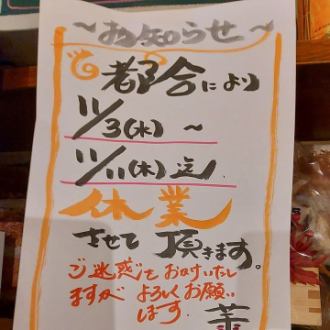 ～お知らせ～
都合により
11/3(水) ～
11/11(木)迄
休業
させて頂きます。
ご迷惑をおかけいたし
ますがよろしくお願い
します。